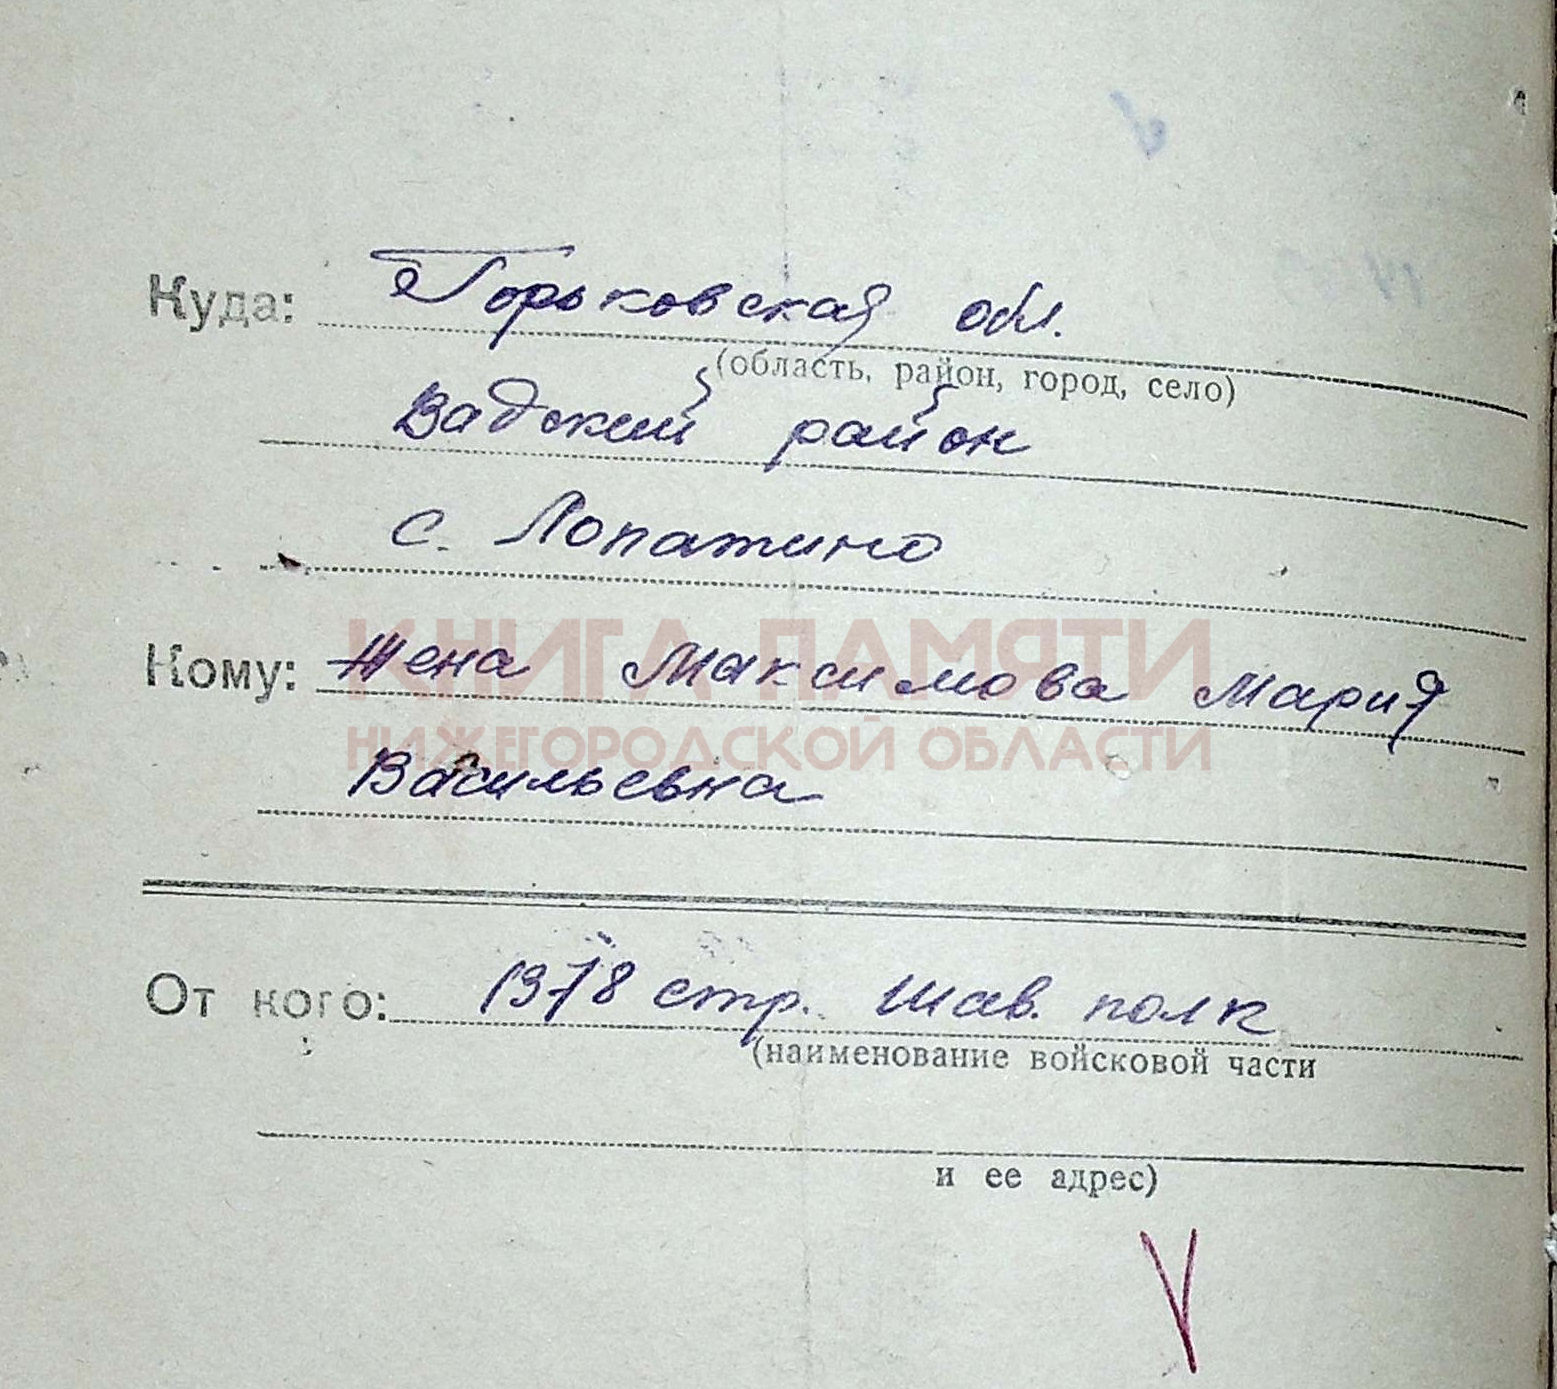 Куда: Горьковская обл.
(область, район, город, село)
Вадский район
с. Лопатино
КНИГА ПАМЯТИ
Кому: Жена Максимова Мария
НИЖЕГОРОДСКОЙ ОБЛАСТИ
Васильевна
От кого: 1378 стр. Шав. полк
(наименование войсковой части
и ее адрес)